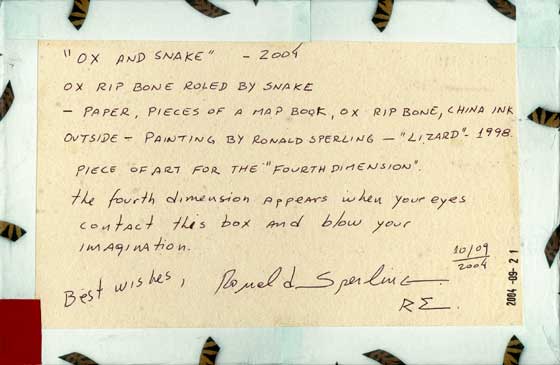 "OX AND SNAKE" - 2004
OX RIP BONE ROLED BY SNAKE
- PAPER, PIECES OF A MAP BOOK, OX RIP BONE, CHINA INK
OUTSIDE - PAINTING BY RONALD SPERLING - "LIZARD" - 1998
PIECE OF ART FOR THE "FOURTH DIMENSION".
the fourth dimension appears when your eyes
contact this box and blow your
imagination.
10/09
2004
Best wishes, Ronald Sperling
RS.
2004-09-21